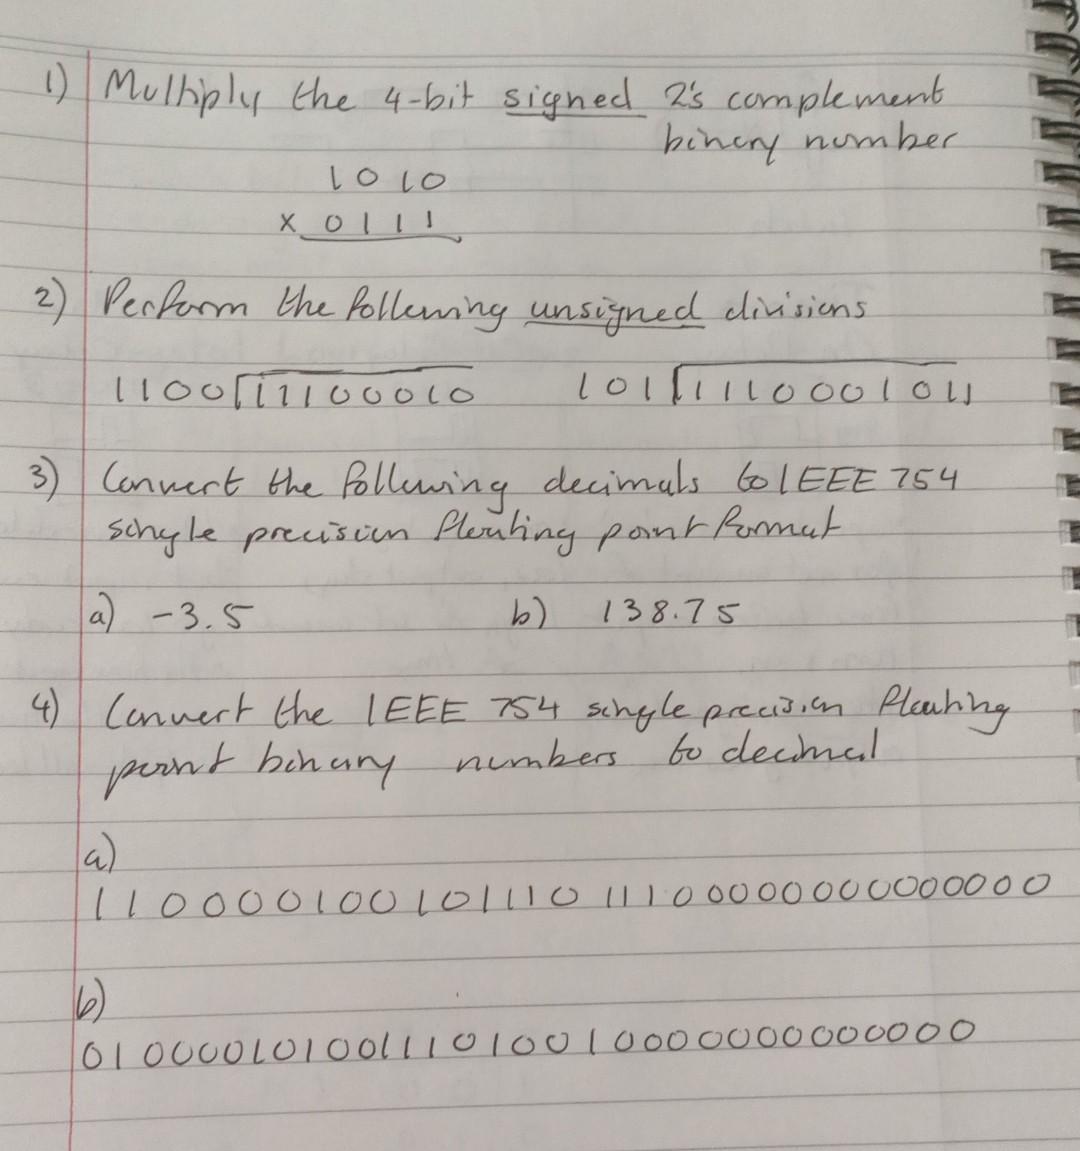 1) Multiply the 4-bit signed 2's complement
binary number
1010
x 0111
2) Perform the following unsigned divisions
1100 11100010 101 1110001011
3) Convert the following decimals to IEEE 754
single precision floating point format
a) -3.5 b) 138.75
4) Convert the IEEE 754 single precision floating
point binary numbers to decimal
a)
11000010010111011100000000000000
b)
01000010100111010010000000000000